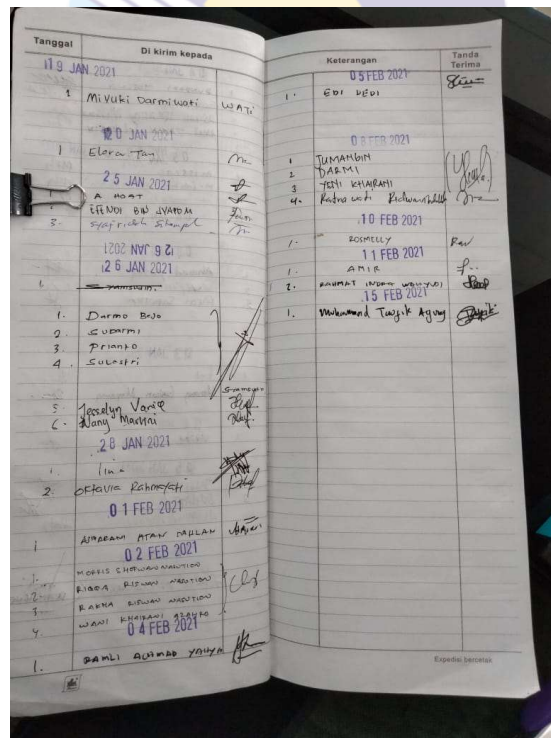 Tanggal Di kirim kepada
19 JAN 2021
1 Miyuki Darmiwati WATI
20 JAN 2021
1 Elera Tan
25 JAN 2021
A HOAT
EFENDI BIN
3.
26 JAN 2021
26 JAN 2021
1.
1. Darmo Bejo
2. Subarmi
3. Prianto
4. Sulastri
5 Jesselyn
6. Nany
28 JAN 2021
1. lina
2. Oktavia Rahmayati
01 FEB 2021
1 ATAN DAHLAN
02 FEB 2021
1. MORRIS NASUTION
2. RISWAN NASUTION
3 RAKHA RISWAN NASUTION
4. WANI KHAIRANI
04 FEB 2021
1. RAMLI ACHMAD YAHYA
Keterangan Tanda Terima
05 FEB 2021
1. EDI DEDI
08 FEB 2021
1 JUMANGIN
2 DARMI
3 YENI KHAIRANI
4. Ratna wati
10 FEB 2021
1. ROSMELLY
11 FEB 2021
1. AMIR
2. RAHMAT INDRA WAHYUDI
15 FEB 2021
1. Muhammad Taufik Agung
Expedisi bercetak